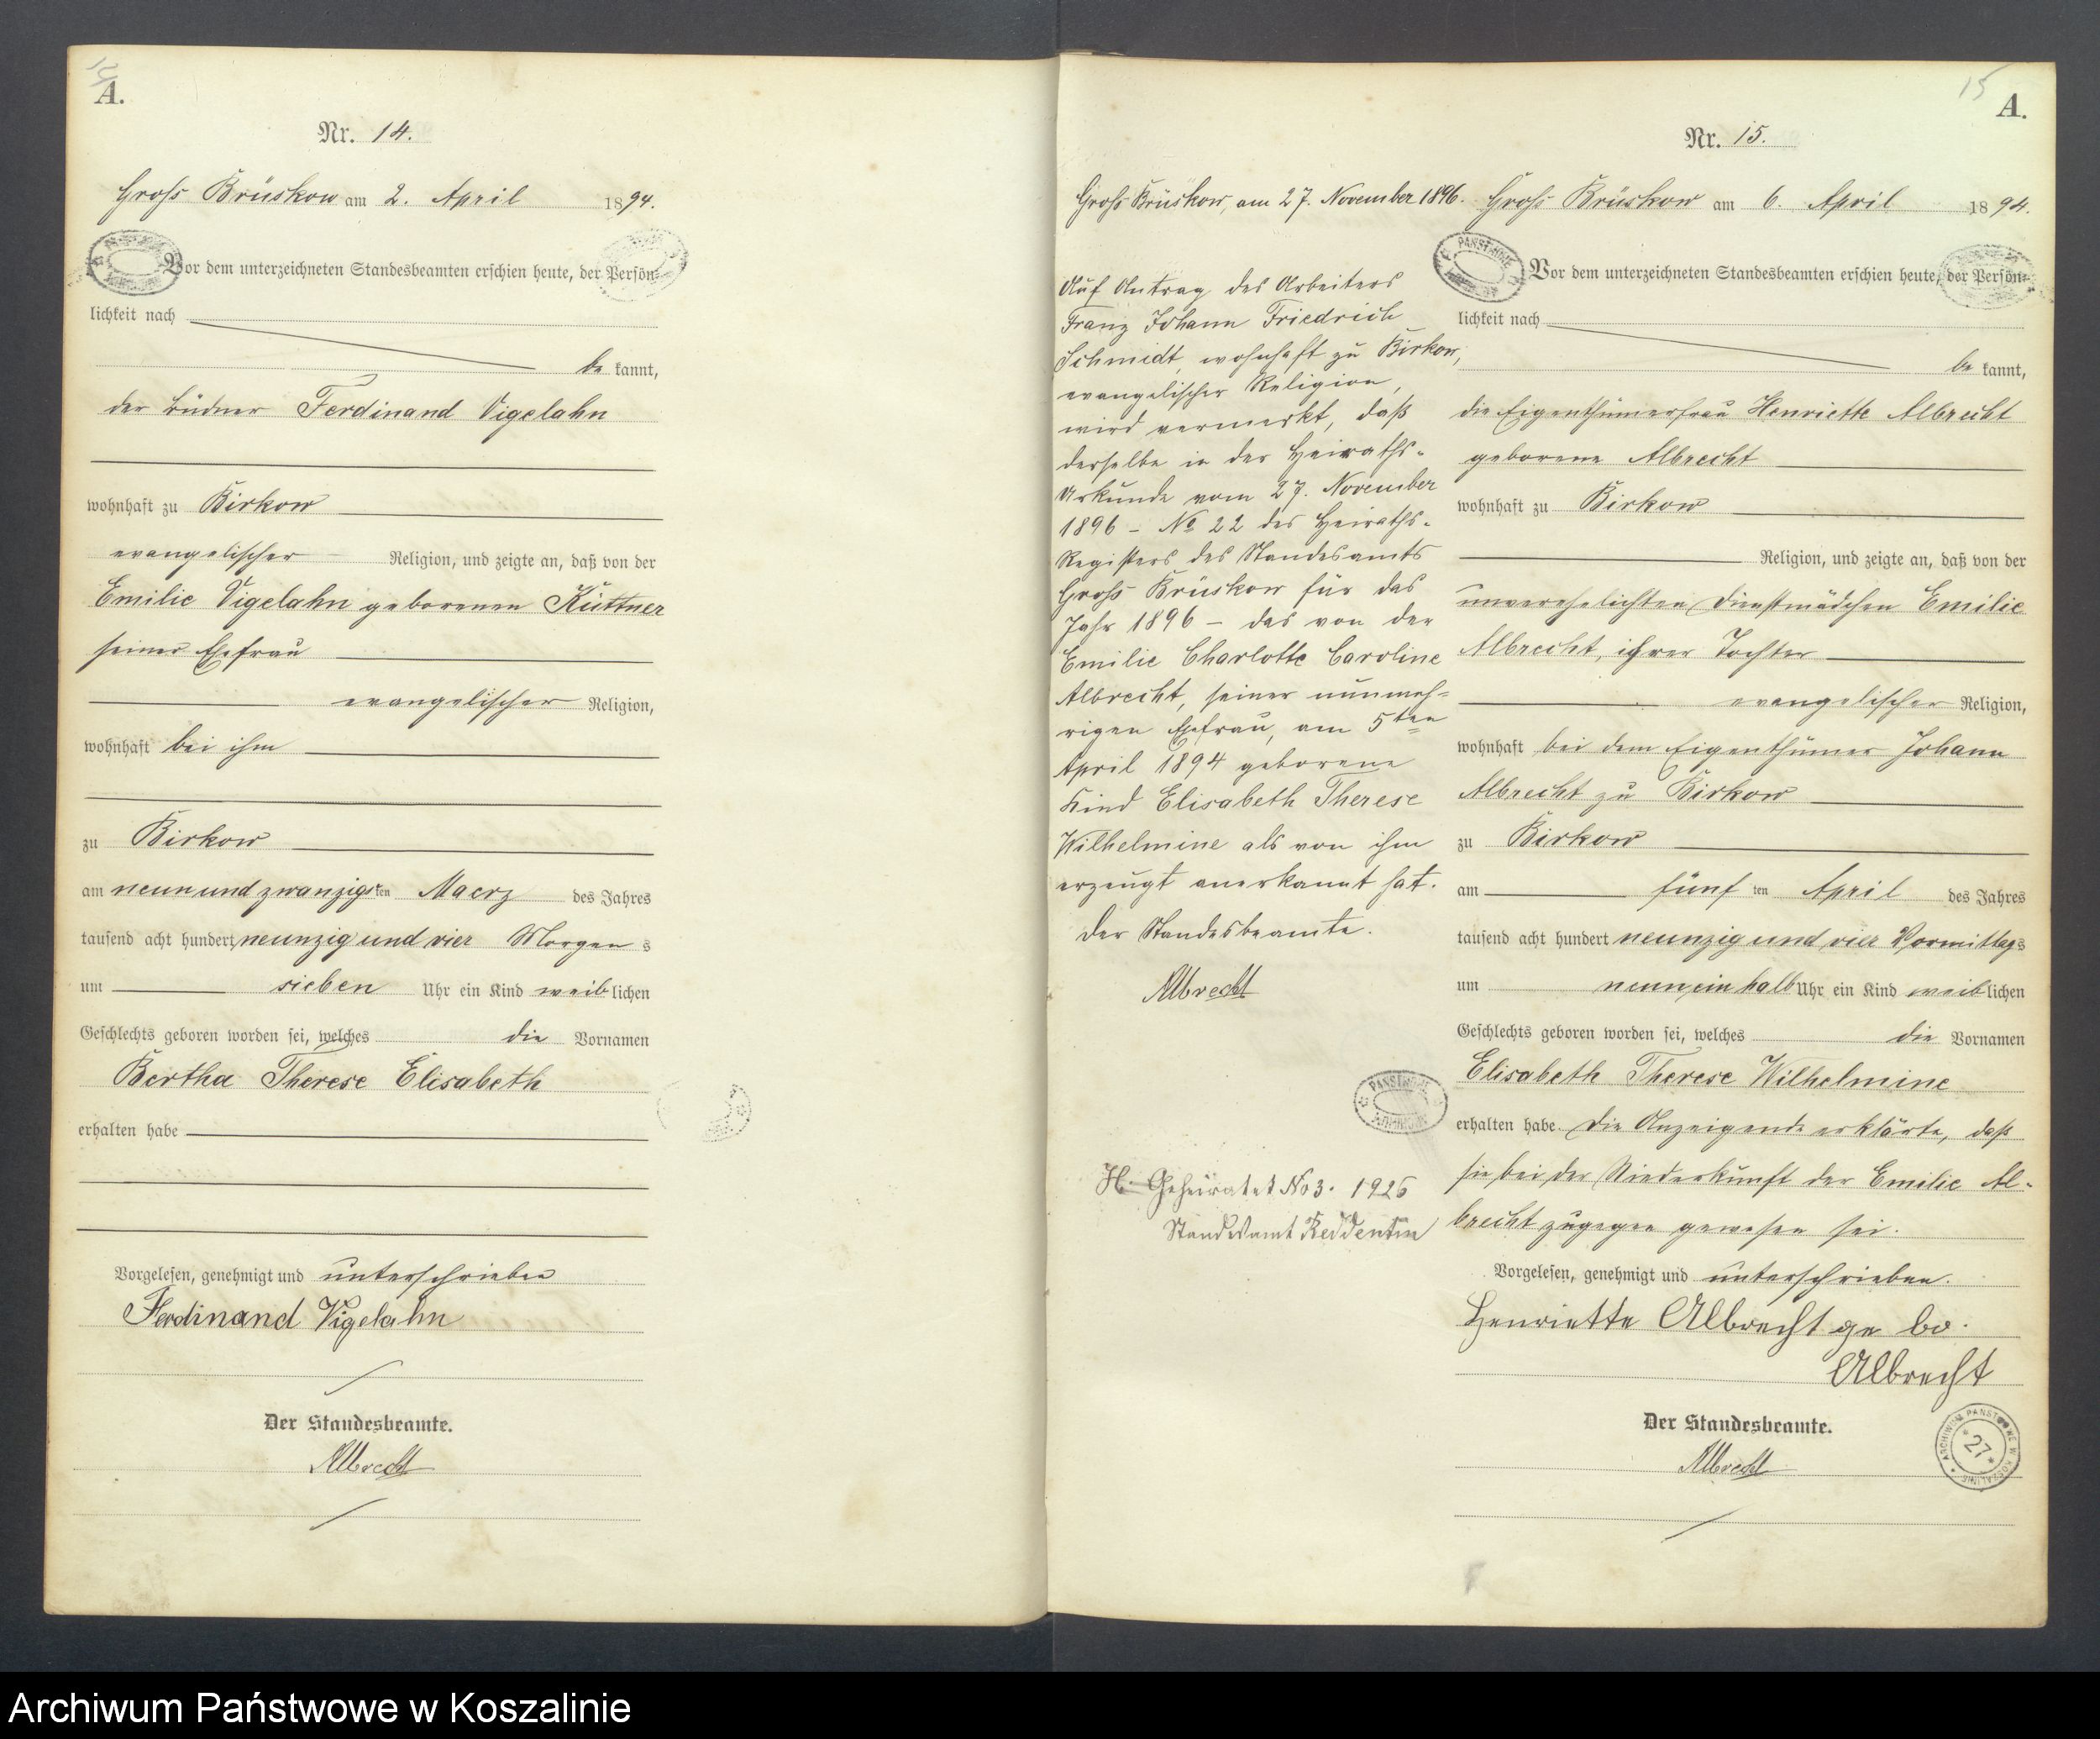 14
A.
Nr. 14.
Groß Brüskow am 2. April 1894.
Vor dem unterzeichneten Standesbeamten erschien heute, der Persön=
lichkeit nach
be kannt,
der Büdner Ferdinand Vigelahn
wohnhaft zu Birkow
evangelischer Religion, und zeigte an, daß von der
Emilie Vigelahn geborenen Küttner
seiner Ehefrau
evangelischer Religion,
wohnhaft bei ihm
zu Birkow
am neun und zwanzigsten Maerz des Jahres
tausend acht hundert neunzig und vier Morgens
um sieben Uhr ein Kind weiblichen
Geschlechts geboren worden sei, welches die Vornamen
Bertha Therese Elisabeth
erhalten habe
Vorgelesen, genehmigt und unterschrieben
Ferdinand Vigelahn
Der Standesbeamte.
Albrecht
Groß Brüskow, am 27. November 1896.
Auf Antrag des Arbeiters
Franz Johann Friedrich
Schmidt, wohnhaft zu Birkow,
evangelischer Religion,
wird vermerkt, daß
derselbe in der Heiraths-
Urkunde vom 27. November
1896 – No 22 des Heiraths-
Registers des Standesamts
Groß Brüskow für das
Jahr 1896 – das von der
Emilie Charlotte Caroline
Albrecht, seiner nunmeh=
rigen Ehefrau, am 5ten
April 1894 geborene
Kind Elisabeth Therese
Wilhelmine als von ihm
erzeugt anerkannt hat.
Der Standesbeamte.
Albrecht
PAŃSTWOWE
H. Geheiratet No 3. 1925
Standesamt Reddentin
15
A.
Nr. 15.
Groß Brüskow am 6. April 1894.
PAŃSTWOWE
Vor dem unterzeichneten Standesbeamten erschien heute, der Persön=
lichkeit nach
be kannt,
die Eigenthümerfrau Henriette Albrecht
geborene Albrecht
wohnhaft zu Birkow
Religion, und zeigte an, daß von der
unverehelichten Dienstmädchen Emilie
Albrecht, ihrer Tochter
evangelischer Religion,
wohnhaft bei dem Eigenthümer Johann
Albrecht zu Birkow
zu Birkow
am fünf ten April des Jahres
tausend acht hundert neunzig und vier Vormittags
um neun ein halb Uhr ein Kind weiblichen
Geschlechts geboren worden sei, welches die Vornamen
Elisabeth Therese Wilhelmine
erhalten habe. Die Anzeigende erklärte, daß
sie bei der Niederkunft der Emilie Al-
brecht zugegen gewesen sei.
Vorgelesen, genehmigt und unterschrieben.
Henriette Albrecht ge bo.
Albrecht
Der Standesbeamte.
Albrecht
ARCHIWUM PAŃSTWOWE W KOSZALINIE
27
Archiwum Państwowe w Koszalinie